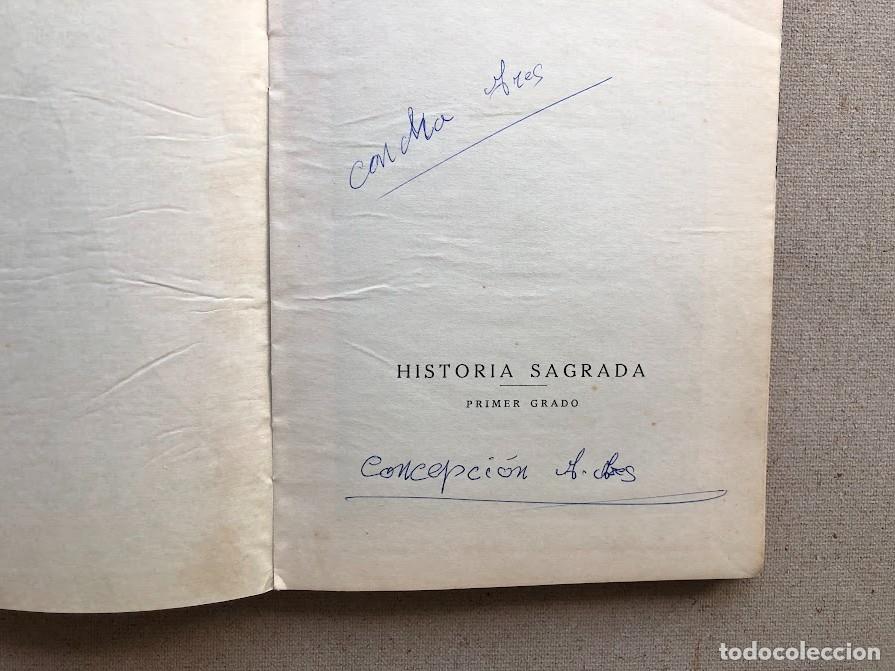 Concha Ares
HISTORIA SAGRADA
PRIMER GRADO
Concepción A. Ares
todocoleccion